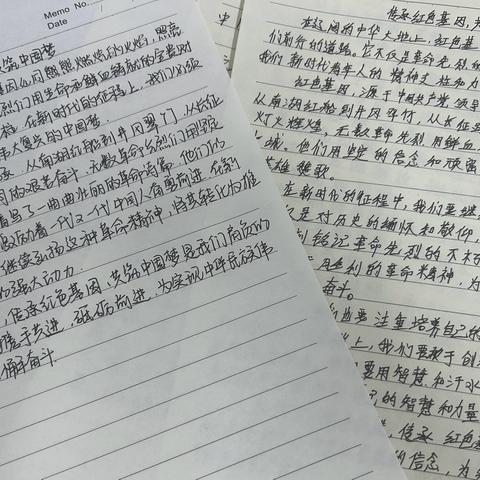 Memo No.
Date
筑中国梦
因如同熊熊燃烧的火焰,照亮
烈们用生命和鲜血铸就的宝贵财
在新时代的征程上,我们必须
伟大复兴的中国梦
从南湖红船到井冈翠竹,从长征
艰苦奋斗,无数革命先烈们用
谱写了一曲曲壮丽的革命诗篇。他们的
励着一代又一代中国人奋勇前进。在新
继续弘扬这种革命精神,将其转化为推
的强大动力。
传承红色基因,共筑中国梦是我们肩负的
携手共进,砥砺前进,为实现中华民族伟
奋斗
中
传承红色基因,
在辽阔的中华大地上,红色基
们前行的道路。它不仅是革命先烈
我们新时代青年人的精神支柱和力
红色基因,源于中国共产党领导
从南湖红船到井冈翠竹,从长征
灯火辉煌,无数革命先烈用鲜血
他们以坚定的信念和顽强
赞歌。
在新时代的征程中,我们要继
是对历史的缅怀和敬仰,
铭记革命先烈的不朽
的革命精神,为
奋斗。
也要注重培养自己的
上,我们要敢于创
要用智慧和汗水
的智慧和力量
传承红色基
的信念,为